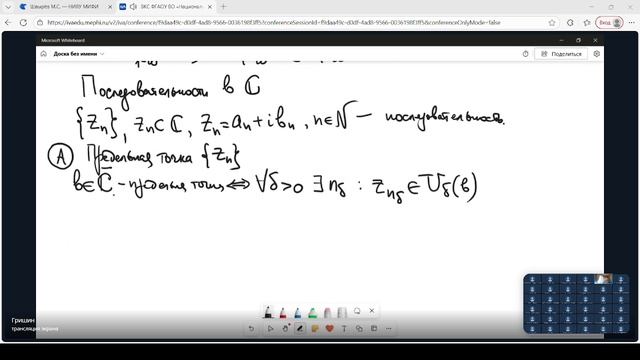 Швырёв М.С. — НИЯУ МИФИ
ВКС ФГАОУ ВО «Национал
https://ivaedu.mephi.ru/v2/iva/conference/f9daaf9c-d0df-4ad8-9566-0036198f3ff5?conferenceSessionId=f9daaf9c-d0df-4ad8-9566-0036198f3ff5&conferenceOnlyMode=false
Вход
Microsoft Whiteboard
Доска без имени
Поделиться
Последовательности в ℂ
{zₙ}, zₙ⊂ℂ, zₙ=aₙ+ibₙ, n∈N — последовательность.
(A) Предельная точка {zₙ}
b∈ℂ - предельная точка ⟺ ∀δ>0 ∃ n_δ : z_{n_δ}∈U_δ(b)
Гришин
трансляция экрана